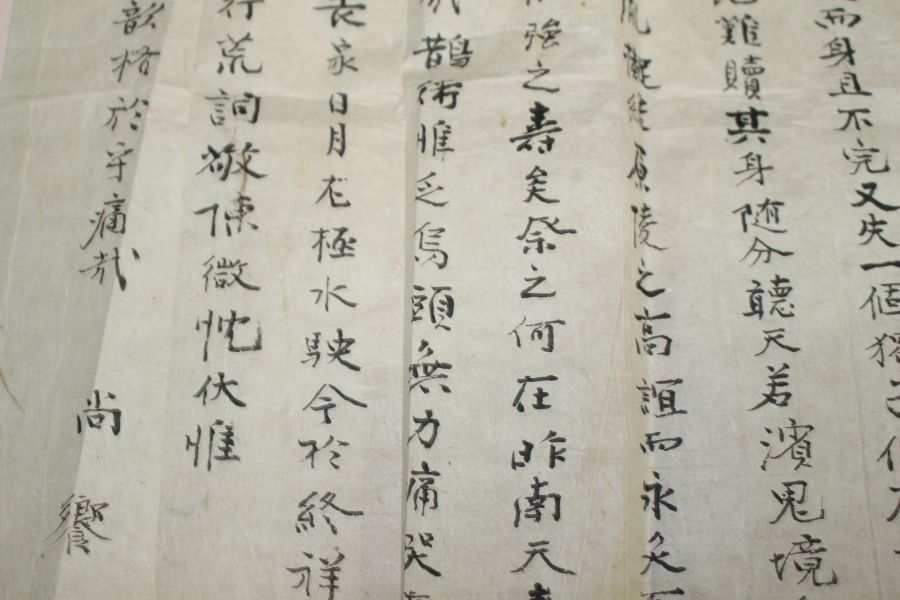 而身且不完又失一個獨子
難贖其身随分聽天若濱鬼境
原陵之高誼而永矣
強之壽矣祭之何在昨南天
鵲術惟乏烏頭無力痛哭
喪家日月尨極水駛今於終祥
行荒詞敬陳微忱伏惟
歆格於乎痛哉 尚 饗